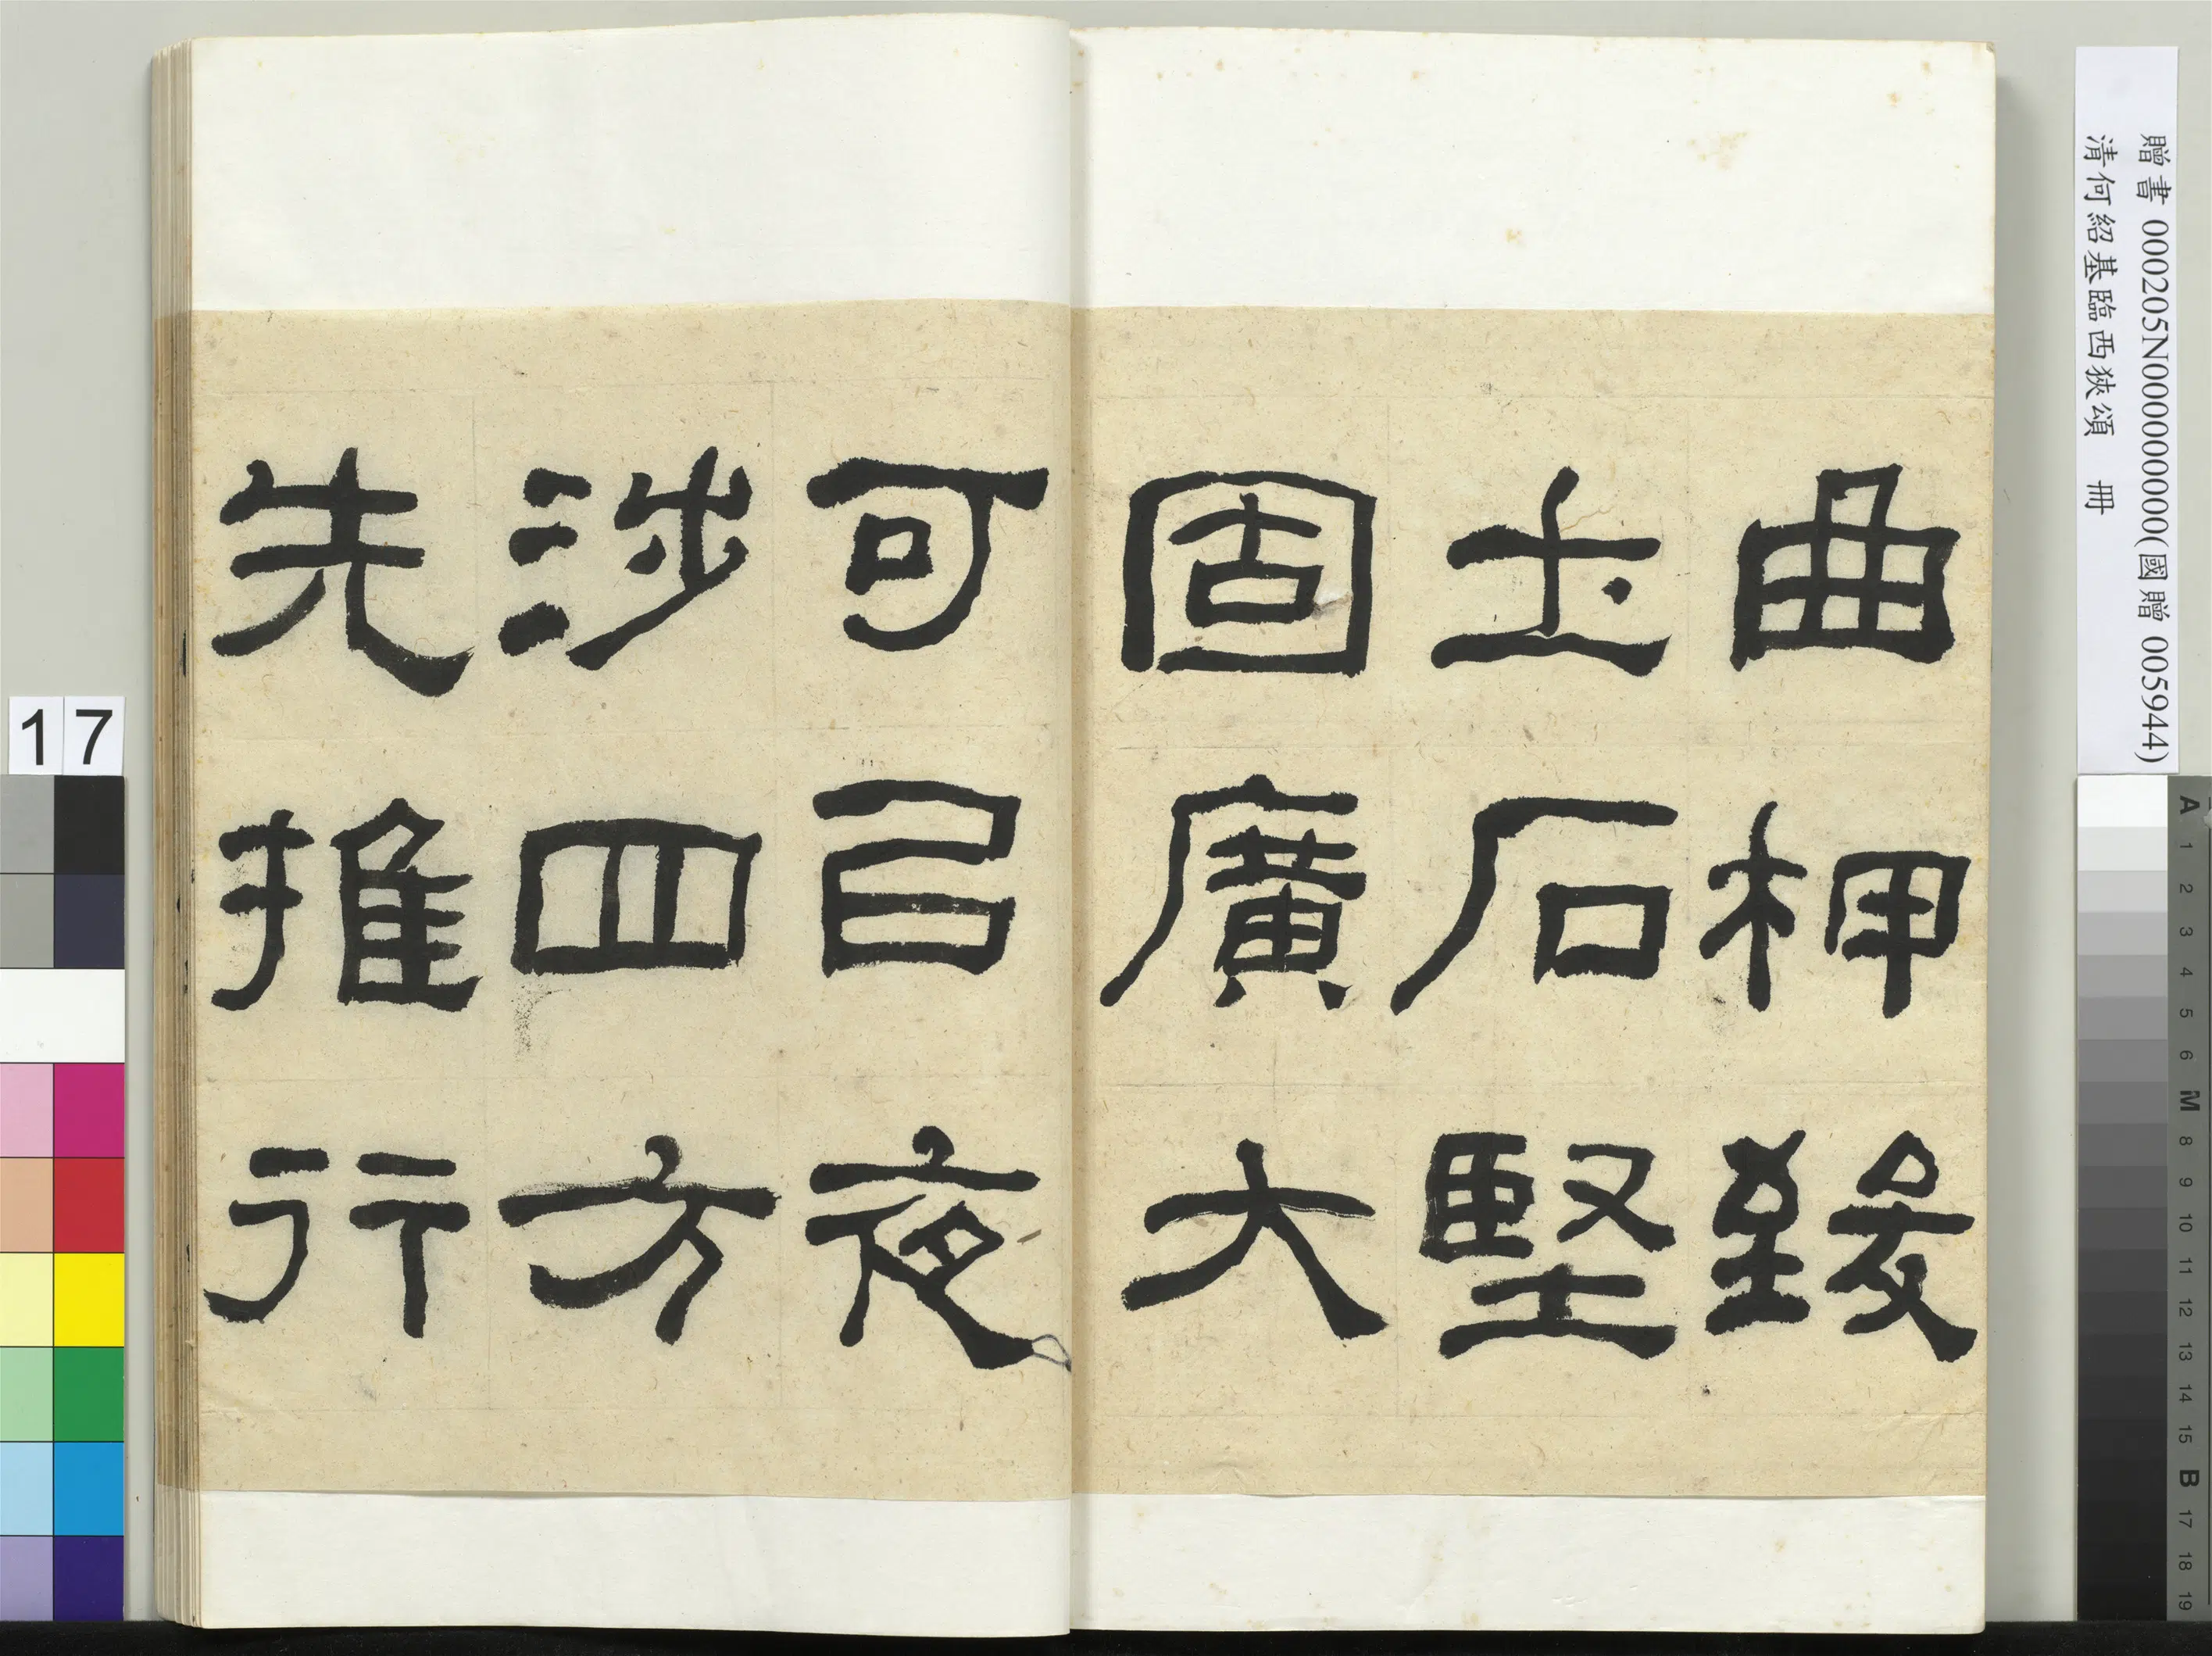 曲柙致
土石堅
固廣大
可㠯夜
涉四方
先推行
贈書 000205N000000000(國贈 005944)
清何紹基臨西狹頌 冊
17
A 1 2 3 4 5 6 M 8 9 10 11 12 13 14 15 B 17 18 19